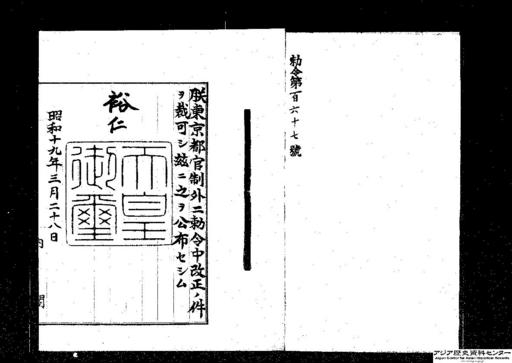 勅令第百六十七號
朕東京都官制外二勅令中改正ノ件
ヲ裁可シ茲ニ之ヲ公布セシム
裕仁
天皇御璽
昭和十九年三月二十八日
内閣
アジア歴史資料センター
Japan Center for Asian Historical Records